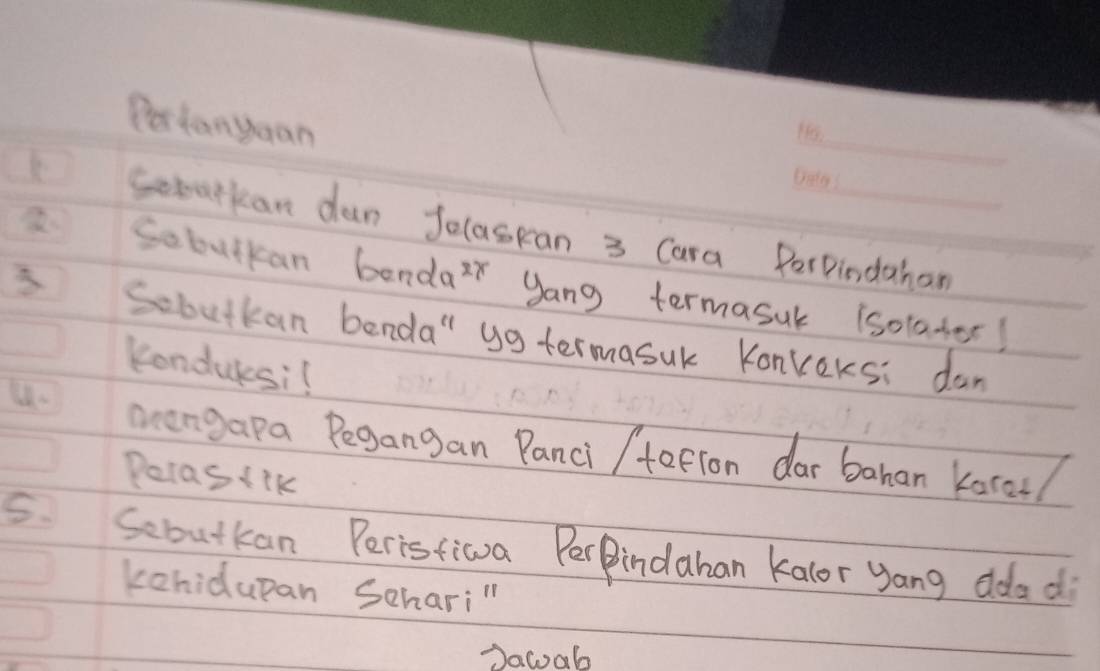 Pertanyaan
No.
Date:
1. Sebutkan dan Jelaskan 3 Cara Perpindahan
2. Sebutkan benda²× yang termasuk isolator!
3 Sebutkan benda" yg termasuk Konveksi dan
Konduksi!
4. Mengapa Pegangan Panci / teflon dar bahan karet/
Pelastik
5. Sebutkan Peristiwa Perpindahan kalor yang ada di
kehidupan Sehari"
Jawab